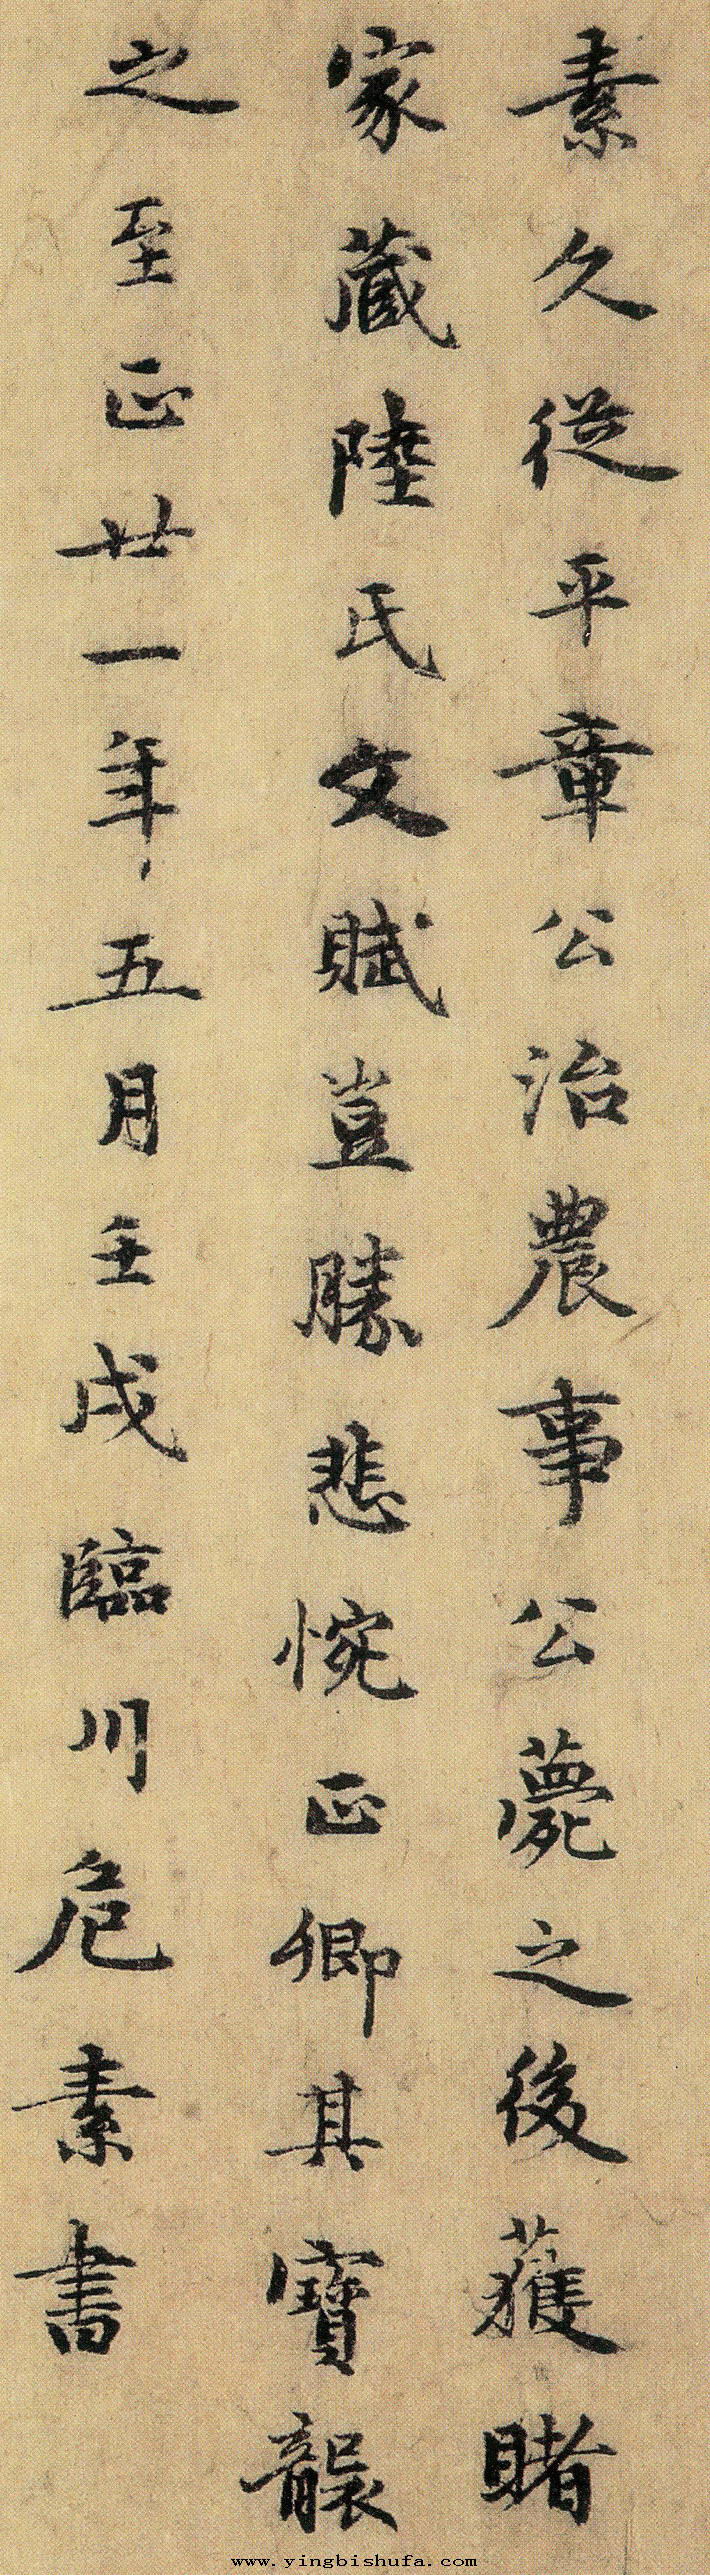 素久從平章公治農事公薨之後獲睹
家藏陸氏文賦豈勝悲惋正卿其寶襲
之至正廿一年五月壬戌臨川危素書
www.yingbishufa.com